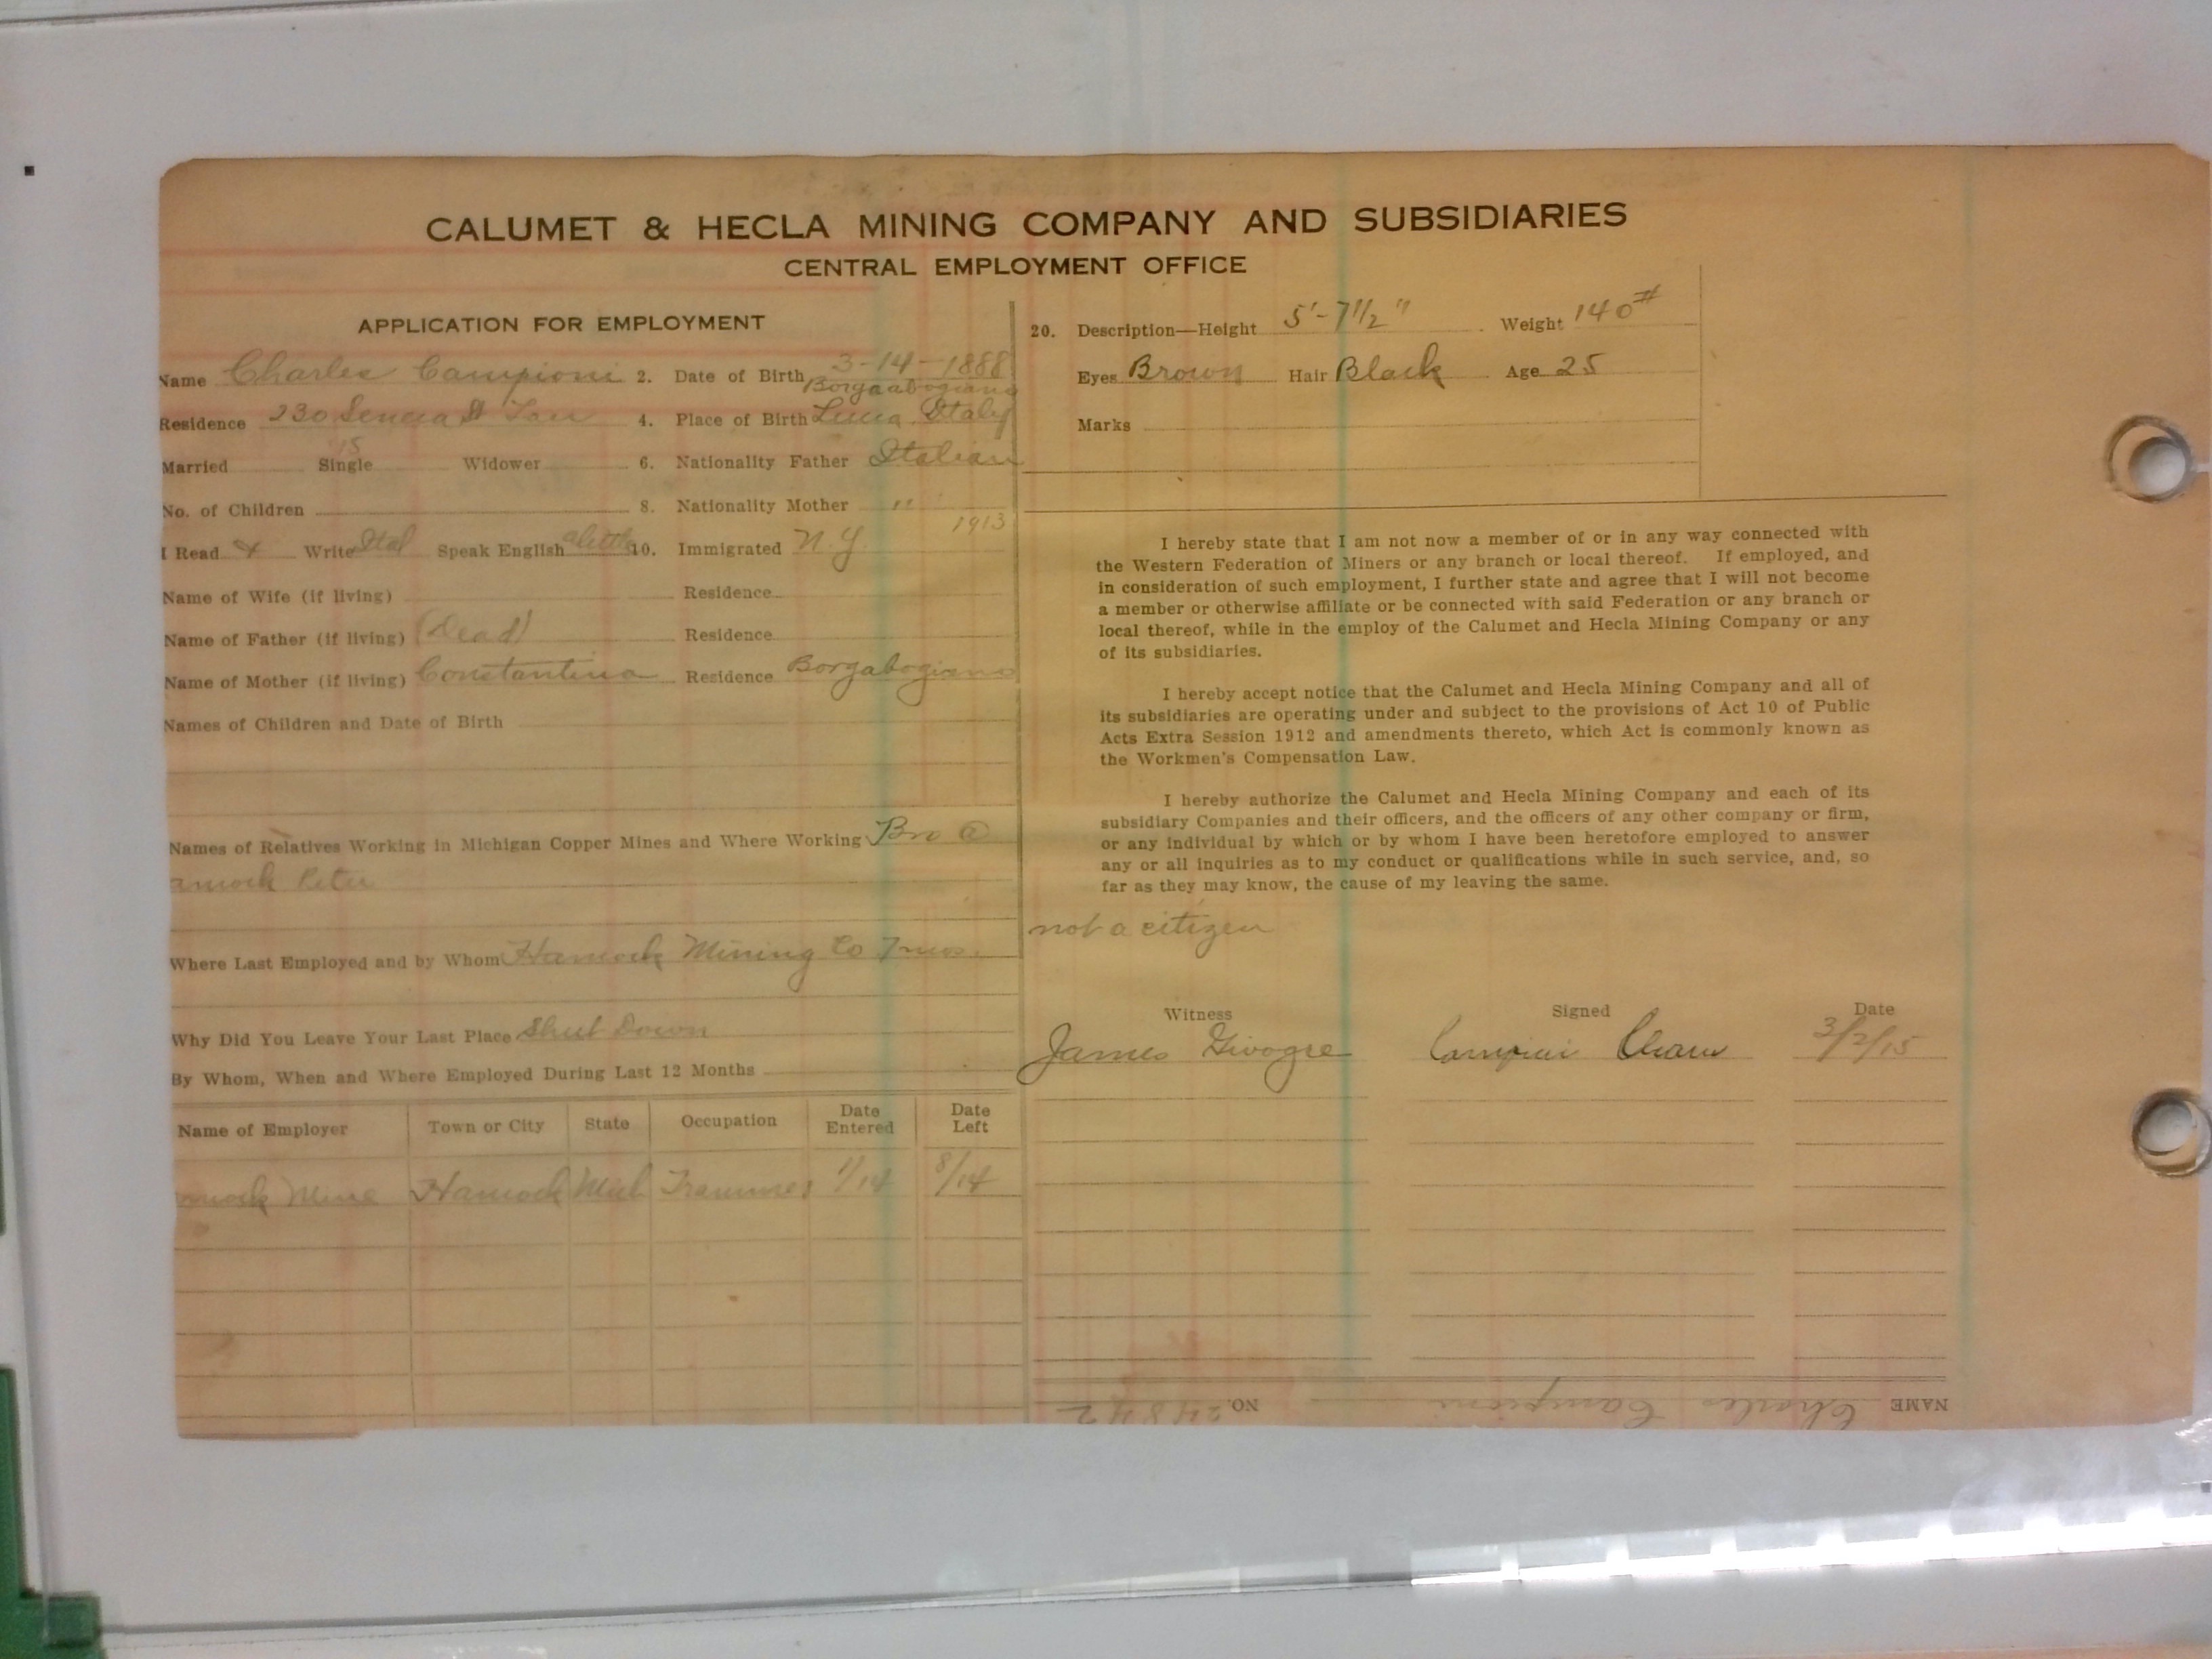 CALUMET & HECLA MINING COMPANY AND SUBSIDIARIES
CENTRAL EMPLOYMENT OFFICE
APPLICATION FOR EMPLOYMENT
Name Charles Campioni 2. Date of Birth 3-14-1888
Residence 230 Seneca St 4. Place of Birth Lucca, Italy
Married Single Widower 6. Nationality Father Italian
No. of Children 8. Nationality Mother "
1913
I Read & Write Ital Speak English a little 10. Immigrated N.Y.
Name of Wife (if living) Residence
Name of Father (if living) (Dead) Residence
Name of Mother (if living) Constantina Residence Borgabogiano
Names of Children and Date of Birth
Names of Relatives Working in Michigan Copper Mines and Where Working Bro @
Peter
Where Last Employed and by Whom Hancock Mining Co
Why Did You Leave Your Last Place Shut Down
By Whom, When and Where Employed During Last 12 Months
Name of Employer Town or City State Occupation Date Entered Date Left
Mine Hancock Mich Trammer 1/14 8/14
20. Description—Height 5'-7 1/2" Weight 140#
Eyes Brown Hair Black Age 25
Marks
I hereby state that I am not now a member of or in any way connected with
the Western Federation of Miners or any branch or local thereof. If employed, and
in consideration of such employment, I further state and agree that I will not become
a member or otherwise affiliate or be connected with said Federation or any branch or
local thereof, while in the employ of the Calumet and Hecla Mining Company or any
of its subsidiaries.
I hereby accept notice that the Calumet and Hecla Mining Company and all of
its subsidiaries are operating under and subject to the provisions of Act 10 of Public
Acts Extra Session 1912 and amendments thereto, which Act is commonly known as
the Workmen's Compensation Law.
I hereby authorize the Calumet and Hecla Mining Company and each of its
subsidiary Companies and their officers, and the officers of any other company or firm,
or any individual by which or by whom I have been heretofore employed to answer
any or all inquiries as to my conduct or qualifications while in such service, and, so
far as they may know, the cause of my leaving the same.
not a citizen
Witness Signed Date
James Givogre 3/2/15
NAME Charles Campioni NO. 24842